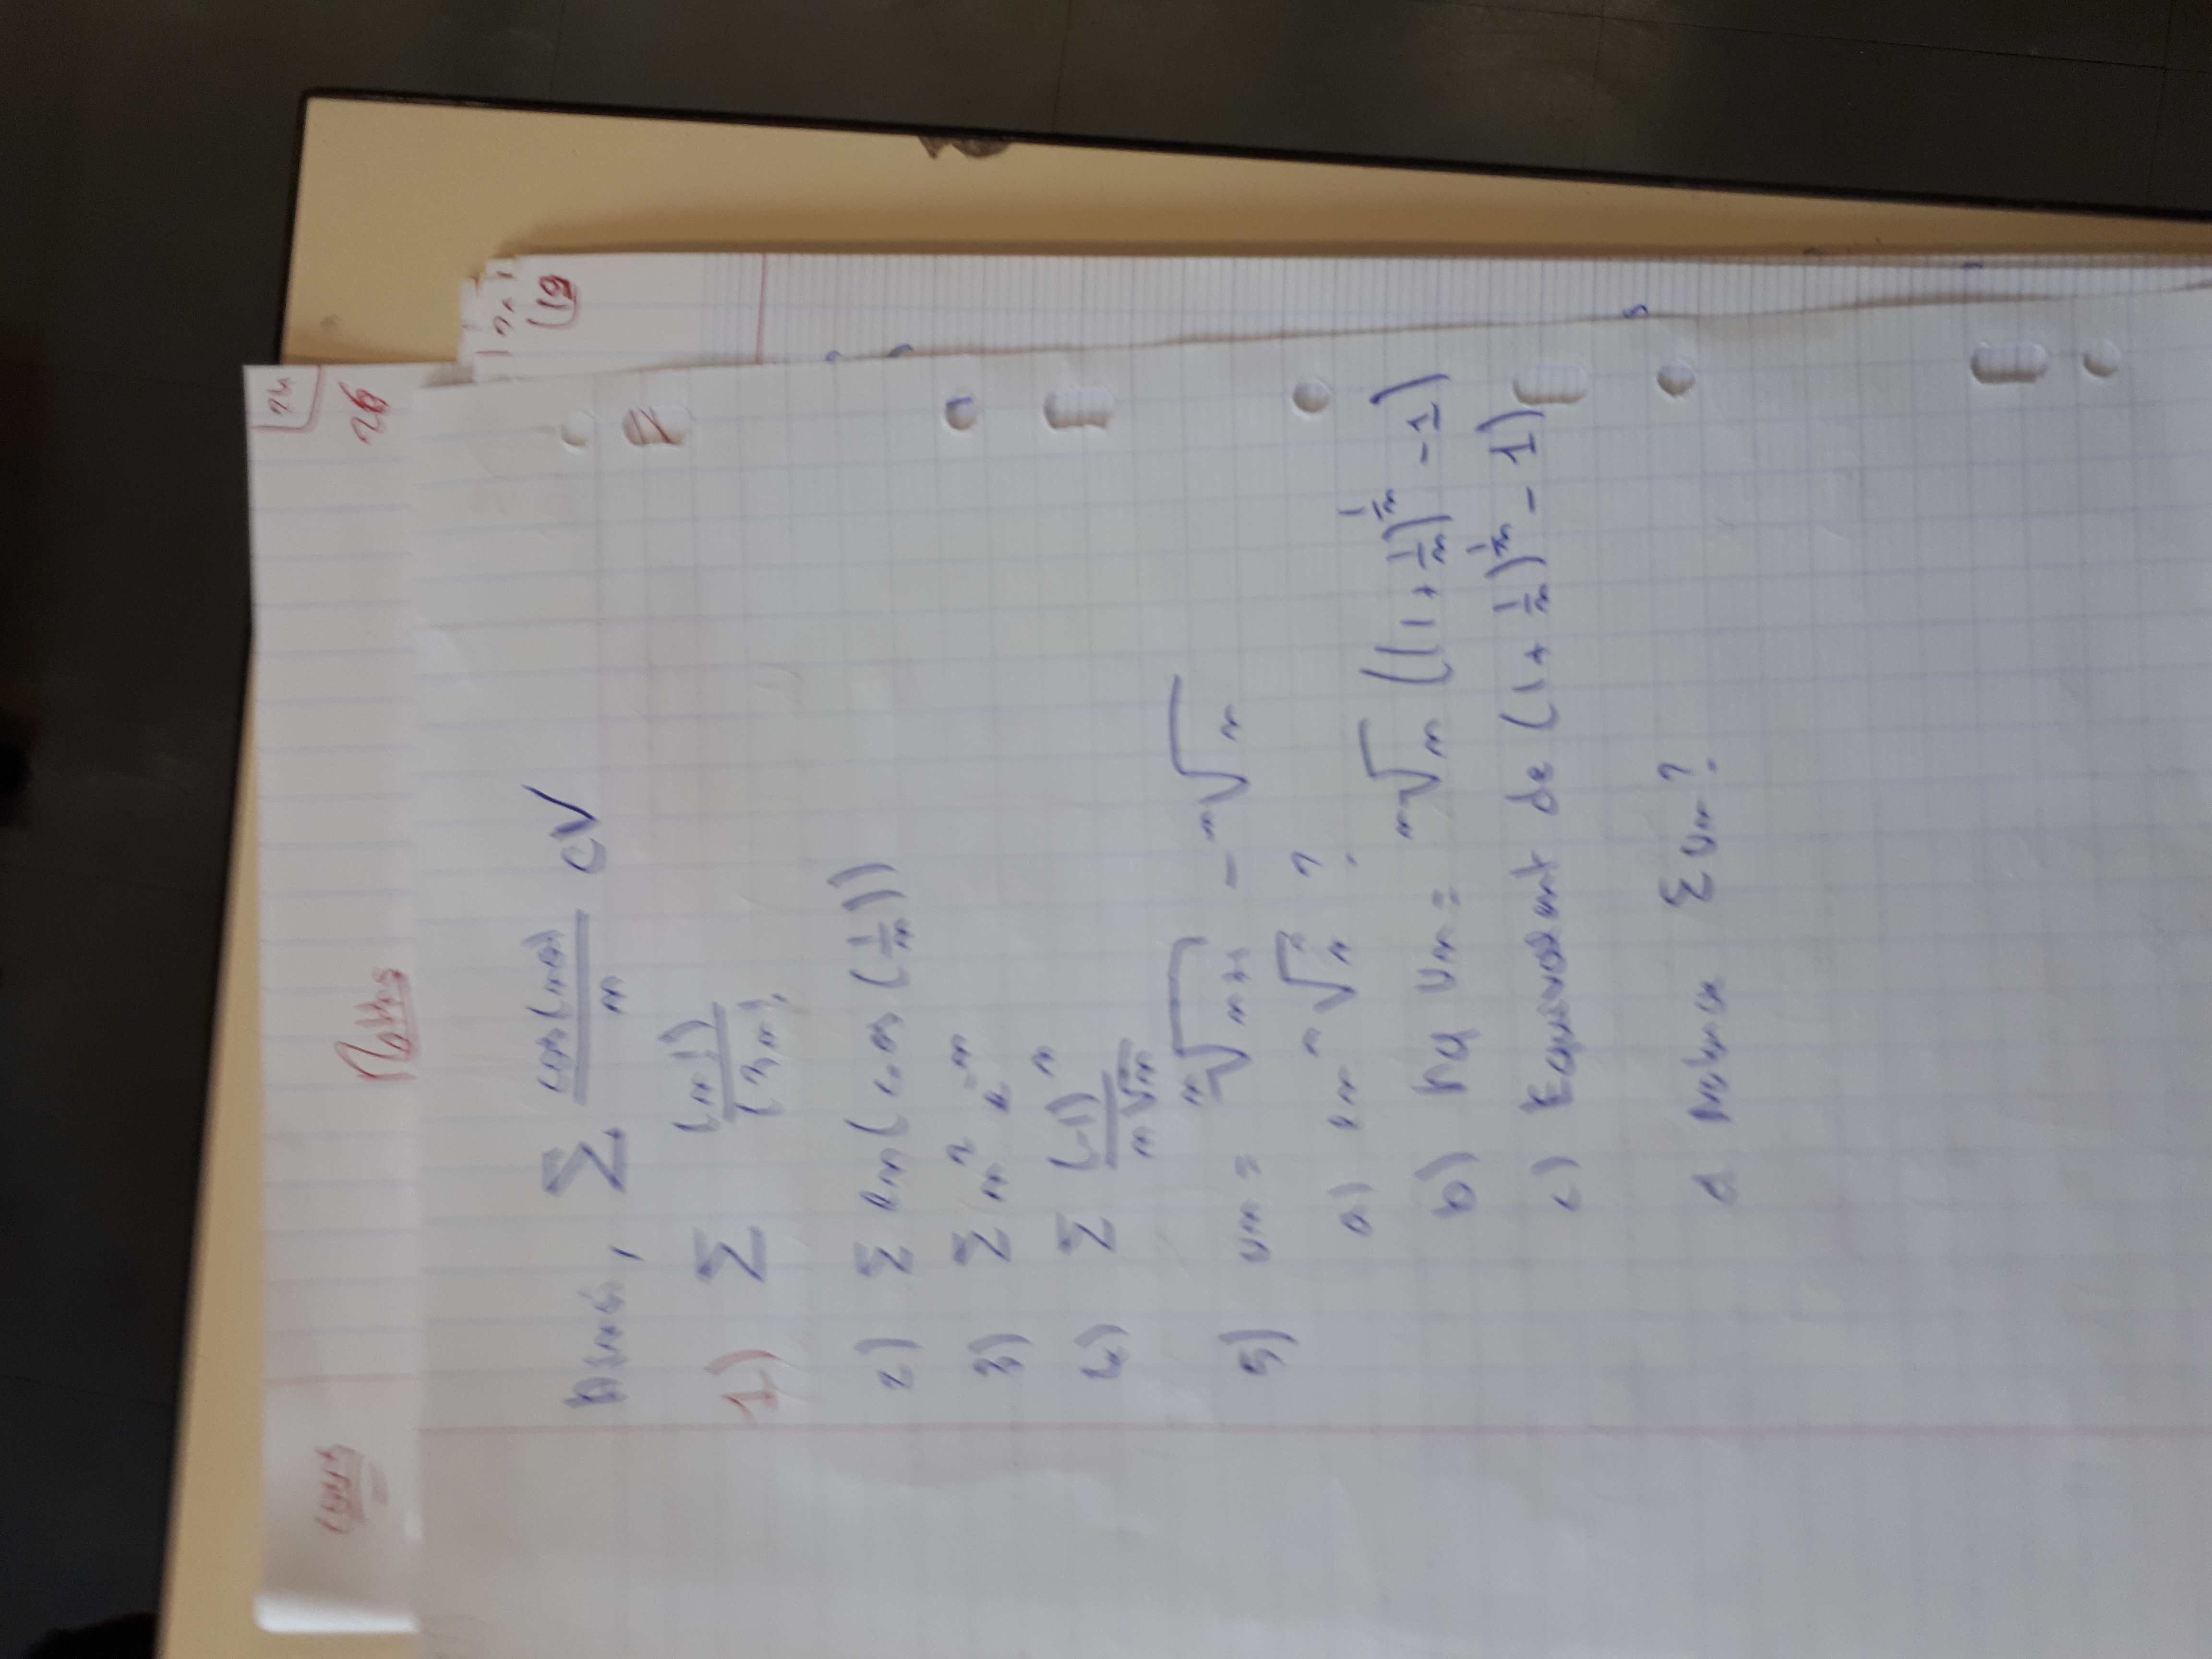 cours
Maths
24
26
19
, ∑ cos(nθ)/n CV
1) ∑ (n!)/(3n)!
2) ∑ ln(cos(1/n))
3) ∑ n² e^-n
4) ∑ (-1)^n / n√n
5) un = ⁿ√n+1 - ⁿ√n
a) lim ⁿ√n ?
b) Mq Un = ⁿ√n ((1+1/n)^1/n -1)
c) Equivalent de (1+1/n)^1/n -1)
d nature ∑ Un ?